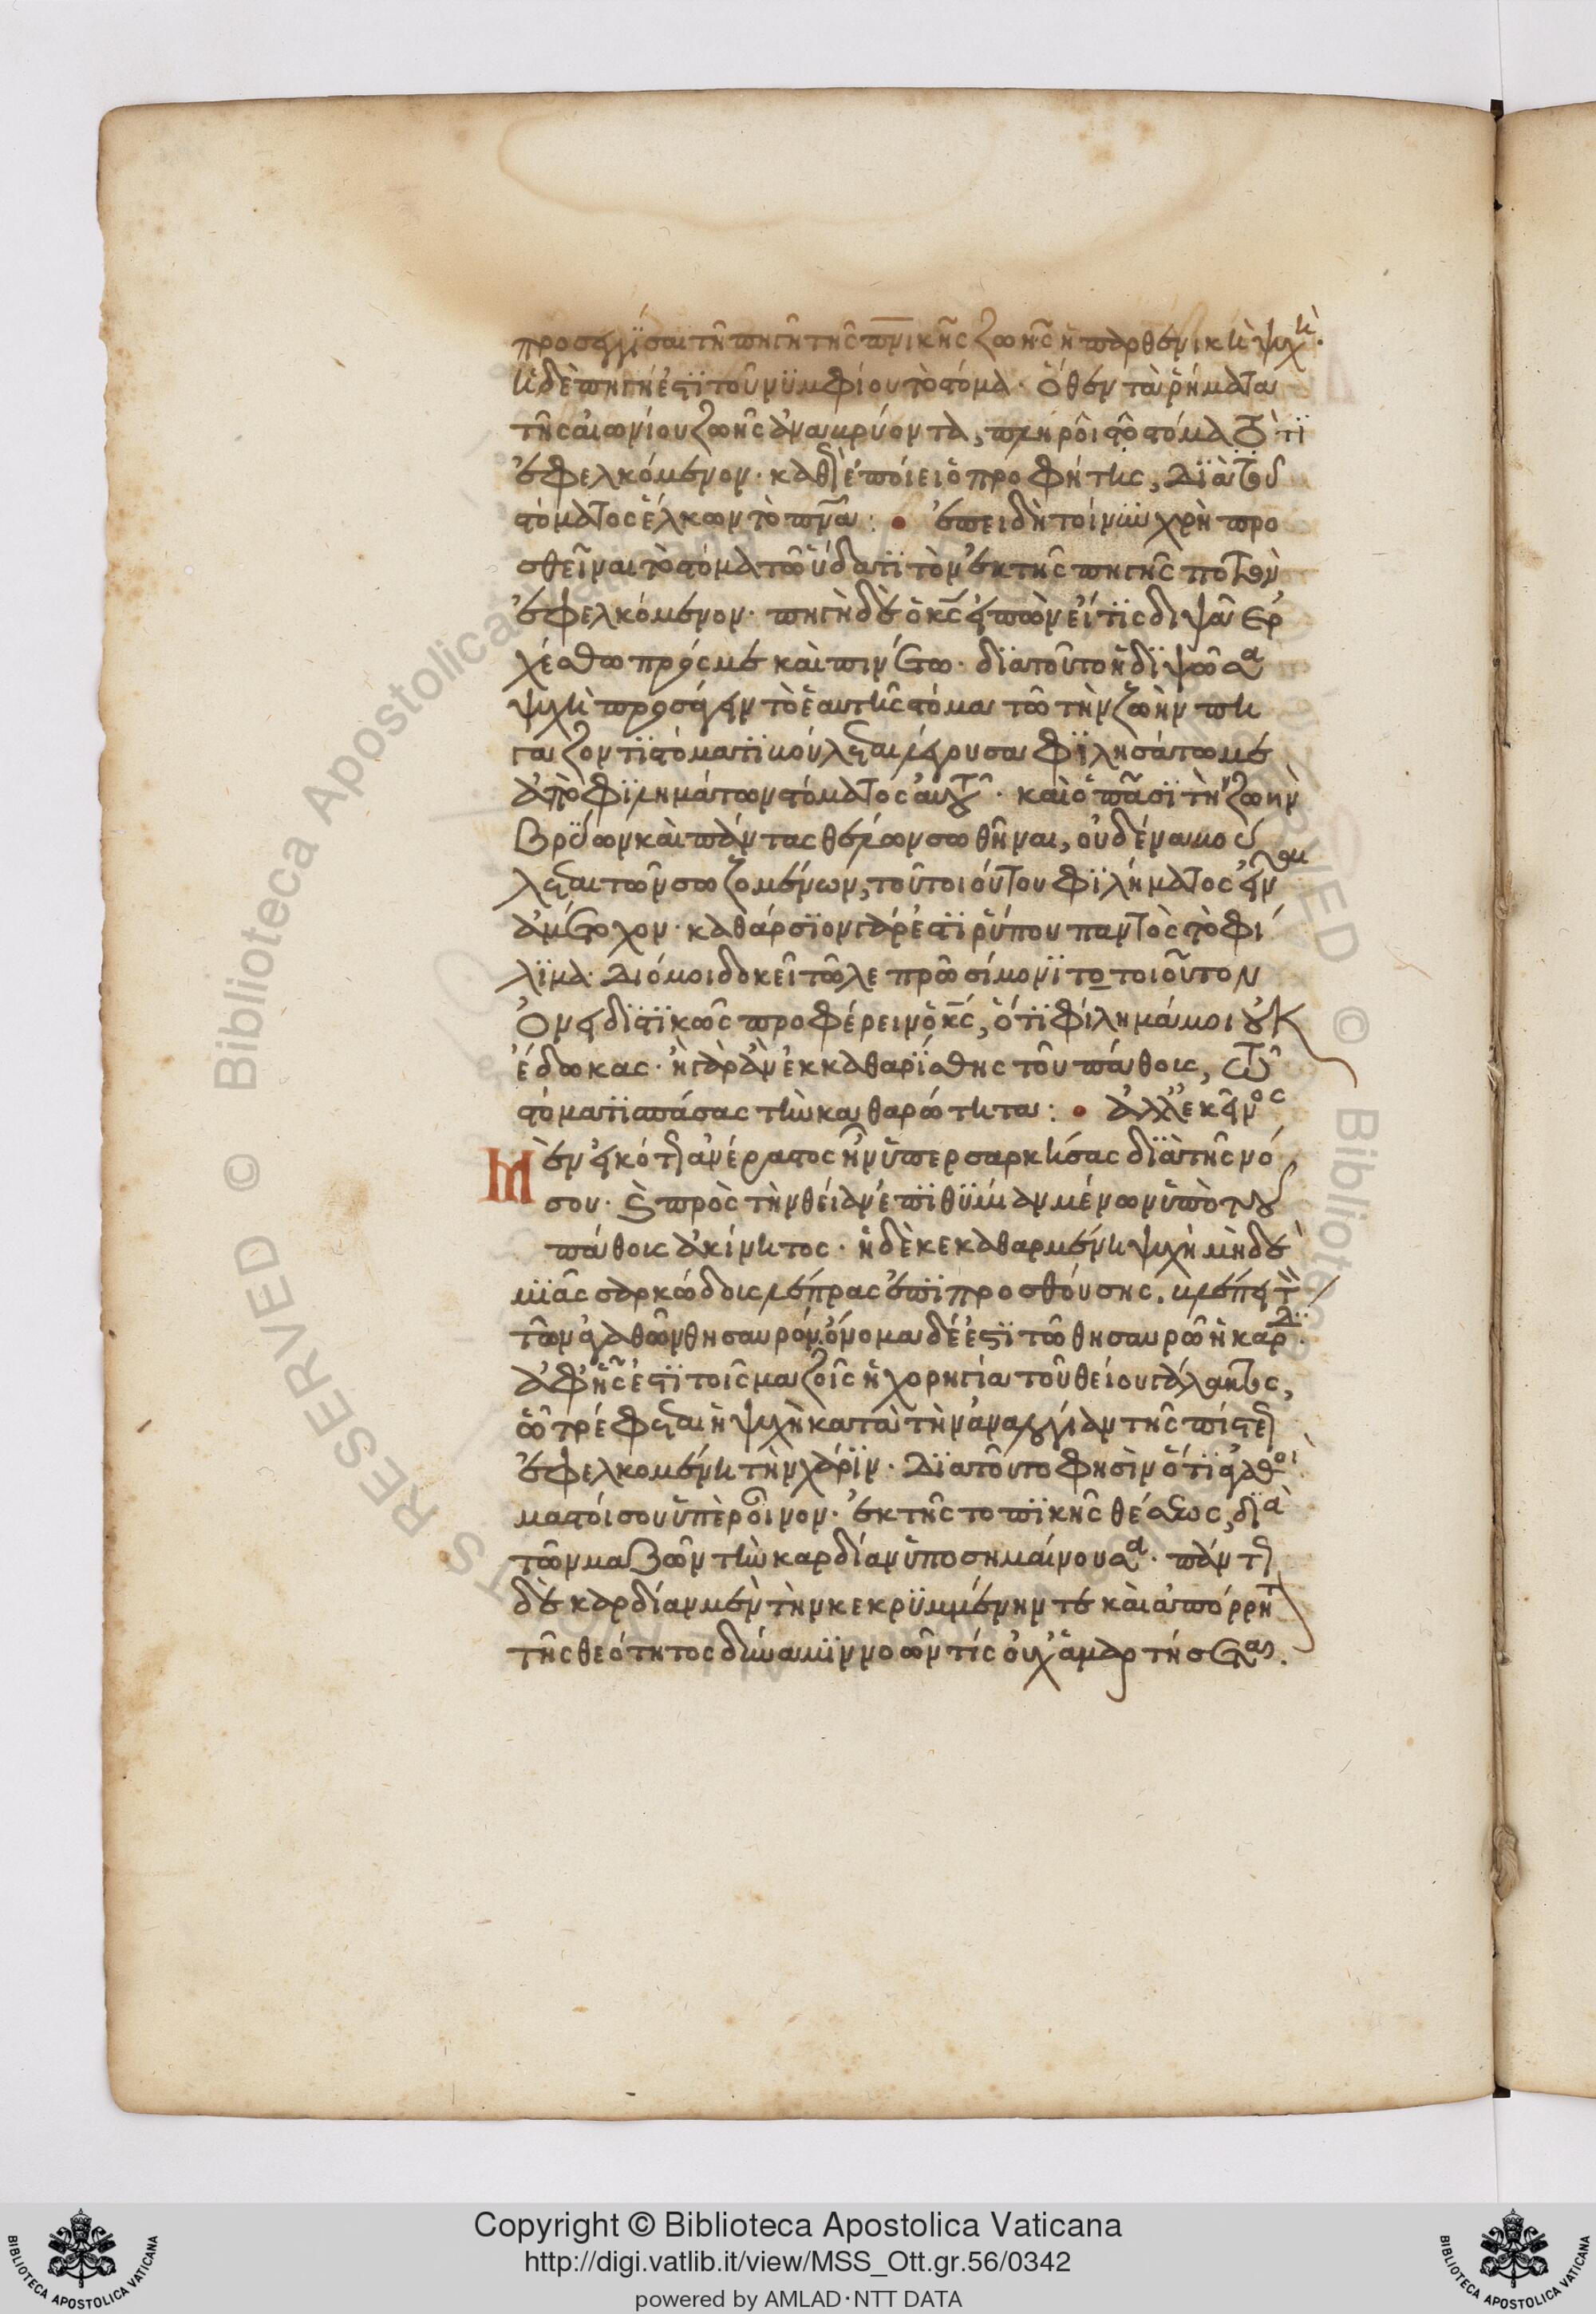 προσεγγίσαι τῆ πηγῆ τῆς πνικῆς ζωῆς ἡ παρθενικὴ ψυχή.
ἡ δὲ πηγή ἐστι τοῦ νυμφίου τὸ στόμα· ὅθεν τὰ ῥήματα
τῆς αἰωνίου ζωῆς ἀναβρύοντα, πληροῖ τὸ στόμα
ἐφελκόμενον· καθὼς ἐποίει ὁ προφήτης, διὰ τοῦ
στόματος ἕλκων τὸ πνα: • ἐπειδὴ τοίνυν χρὴ προ
σθεῖναι τὸ στόμα τῶ ὕδατι τὸν ἐκ τῆς πηγῆς ποτὸν
ἐφελκόμενον· πηγὴ δὲ ὁ κς εἰπὼν εἴ τις διψᾶ ἐρ
χέσθω πρός με καὶ πινέτω· διατοῦτο ἡ διψῶσα
ψυχὴ προσάγειν τὸ ἑαυτῆς στόμα τῶ τὴν ζωὴν πη
γάζοντι στόματι βούλεται λέγουσα φιλησάτω με
ἀπὸ φιλημάτων στόματος αὐτοῦ· καὶ ὁ πᾶσι τὴν ζωὴν
βρύων καὶ πάντας θέλων σωθῆναι, οὐδένα βού
λεται τῶν σωζομένων, τοῦ τοιούτου φιλήματος εἶναι
ἀμέτοχον· καθάρσιον γάρ ἐστι ῥύπου παντὸς τὸ φί
λημα· διό μοι δοκεῖ τῶ λεπρῶ σίμονι τὸ τοιοῦτον
ὀνειδιστικῶς προφέρειν ὁ κς, ὅτι φίλημά μοι οὐκ
ἔδωκας· ἦ γὰρ ἂν ἐκκαθαρίσθης τοῦ πάθους, τῶ
στόματι σπάσας τὴν καθαρότητα: • ἀλλ' ἐκεῖνος
Μὲν εἰκότως ἀνέραστος ἦν ὑπερσαρκήσας διὰ τῆς νό
σου· καὶ πρὸς τὴν θείαν ἐπιθυμίαν μένων ὑπὸ τοῦ
πάθους ἀκίνητος· ἡ δὲ κεκαθαρμένη ψυχὴ μηδε
μιᾶς σαρκώδους λέπρας ἐπιπροσθούσης, βλέπει τὸν
τῶν ἀγαθῶν θησαυρόν. ὄνομα δέ ἐστι τῶ θησαυρῶ ἡ καρδία.
ἀφ' ἧς ἐστι τοῖς μαζοῖς ἡ χορηγία τοῦ θείου γάλακτος,
ᾧ τρέφεται ἡ ψυχὴ κατὰ τὴν ἀναλογίαν τῆς πίστεως
ἐφελκομένη τὴν χάριν· διατοῦτο φησὶν ὅτι ἀγαθοὶ
μαστοί σου ὑπὲρ οἶνον· ἐκ τῆς τοπικῆς θέσεως, διὰ
τῶν μαζῶν τὴν καρδίαν ὑποσημαίνουσα· πάντως
δὲ καρδίαν μὲν τὴν κεκρυμμένην τε καὶ ἀπόρρητον
τῆς θεότητος δύναμιν νοῶν τίς οὐχ ἁμαρτήσεται.
Copyright © Biblioteca Apostolica Vaticana
http://digi.vatlib.it/view/MSS_Ott.gr.56/0342
powered by AMLAD·NTT DATA